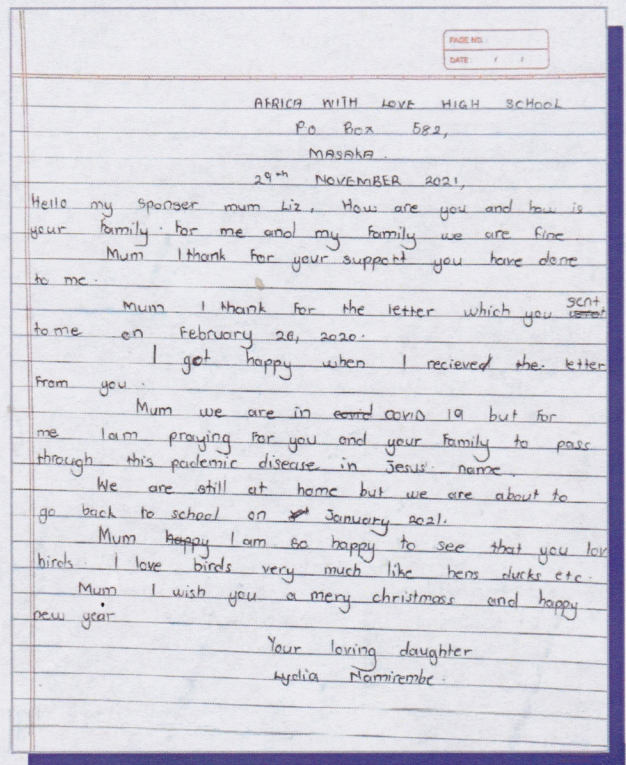 PAGE NO.
DATE: / /
AFRICA WITH LOVE HIGH SCHOOL
PO Box 582,
MASAKA.
29th NOVEMBER 2021,
Hello my sponser mum Liz, How are you and how is
your family. For me and my family we are fine
Mum I thank for your support you have done
to me.
Mum I thank for the letter which you sent
to me on February 26, 2020.
I got happy when I recieved the letter
From you.
Mum we are in covid COVID 19 but for
me I am praying for you and your family to pass
through this pademic disease in Jesus' name
We are still at home but we are about to
go back to school on January 2021.
Mum happy I am so happy to see that you lov
birds. I love birds very much like hens ducks etc.
Mum I wish you a mery christmass and happy
new year
Your loving daughter
Lydia Namirembe.